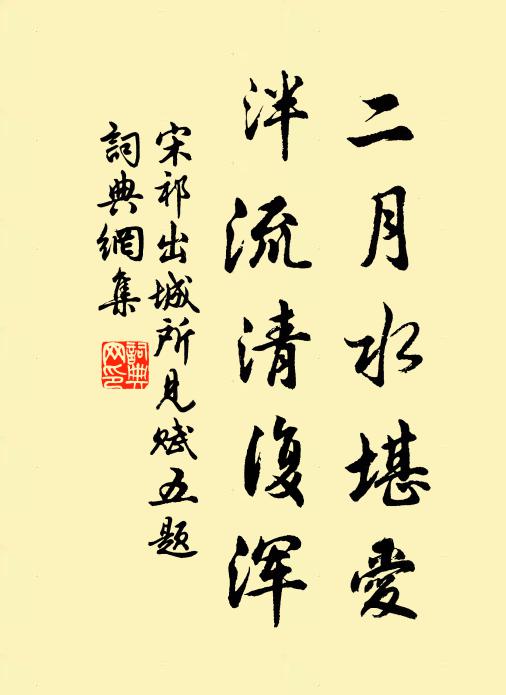 二月水堪愛
泮流清復浑
宋祁出城所見赋五题
詞典網集
詞典
网印